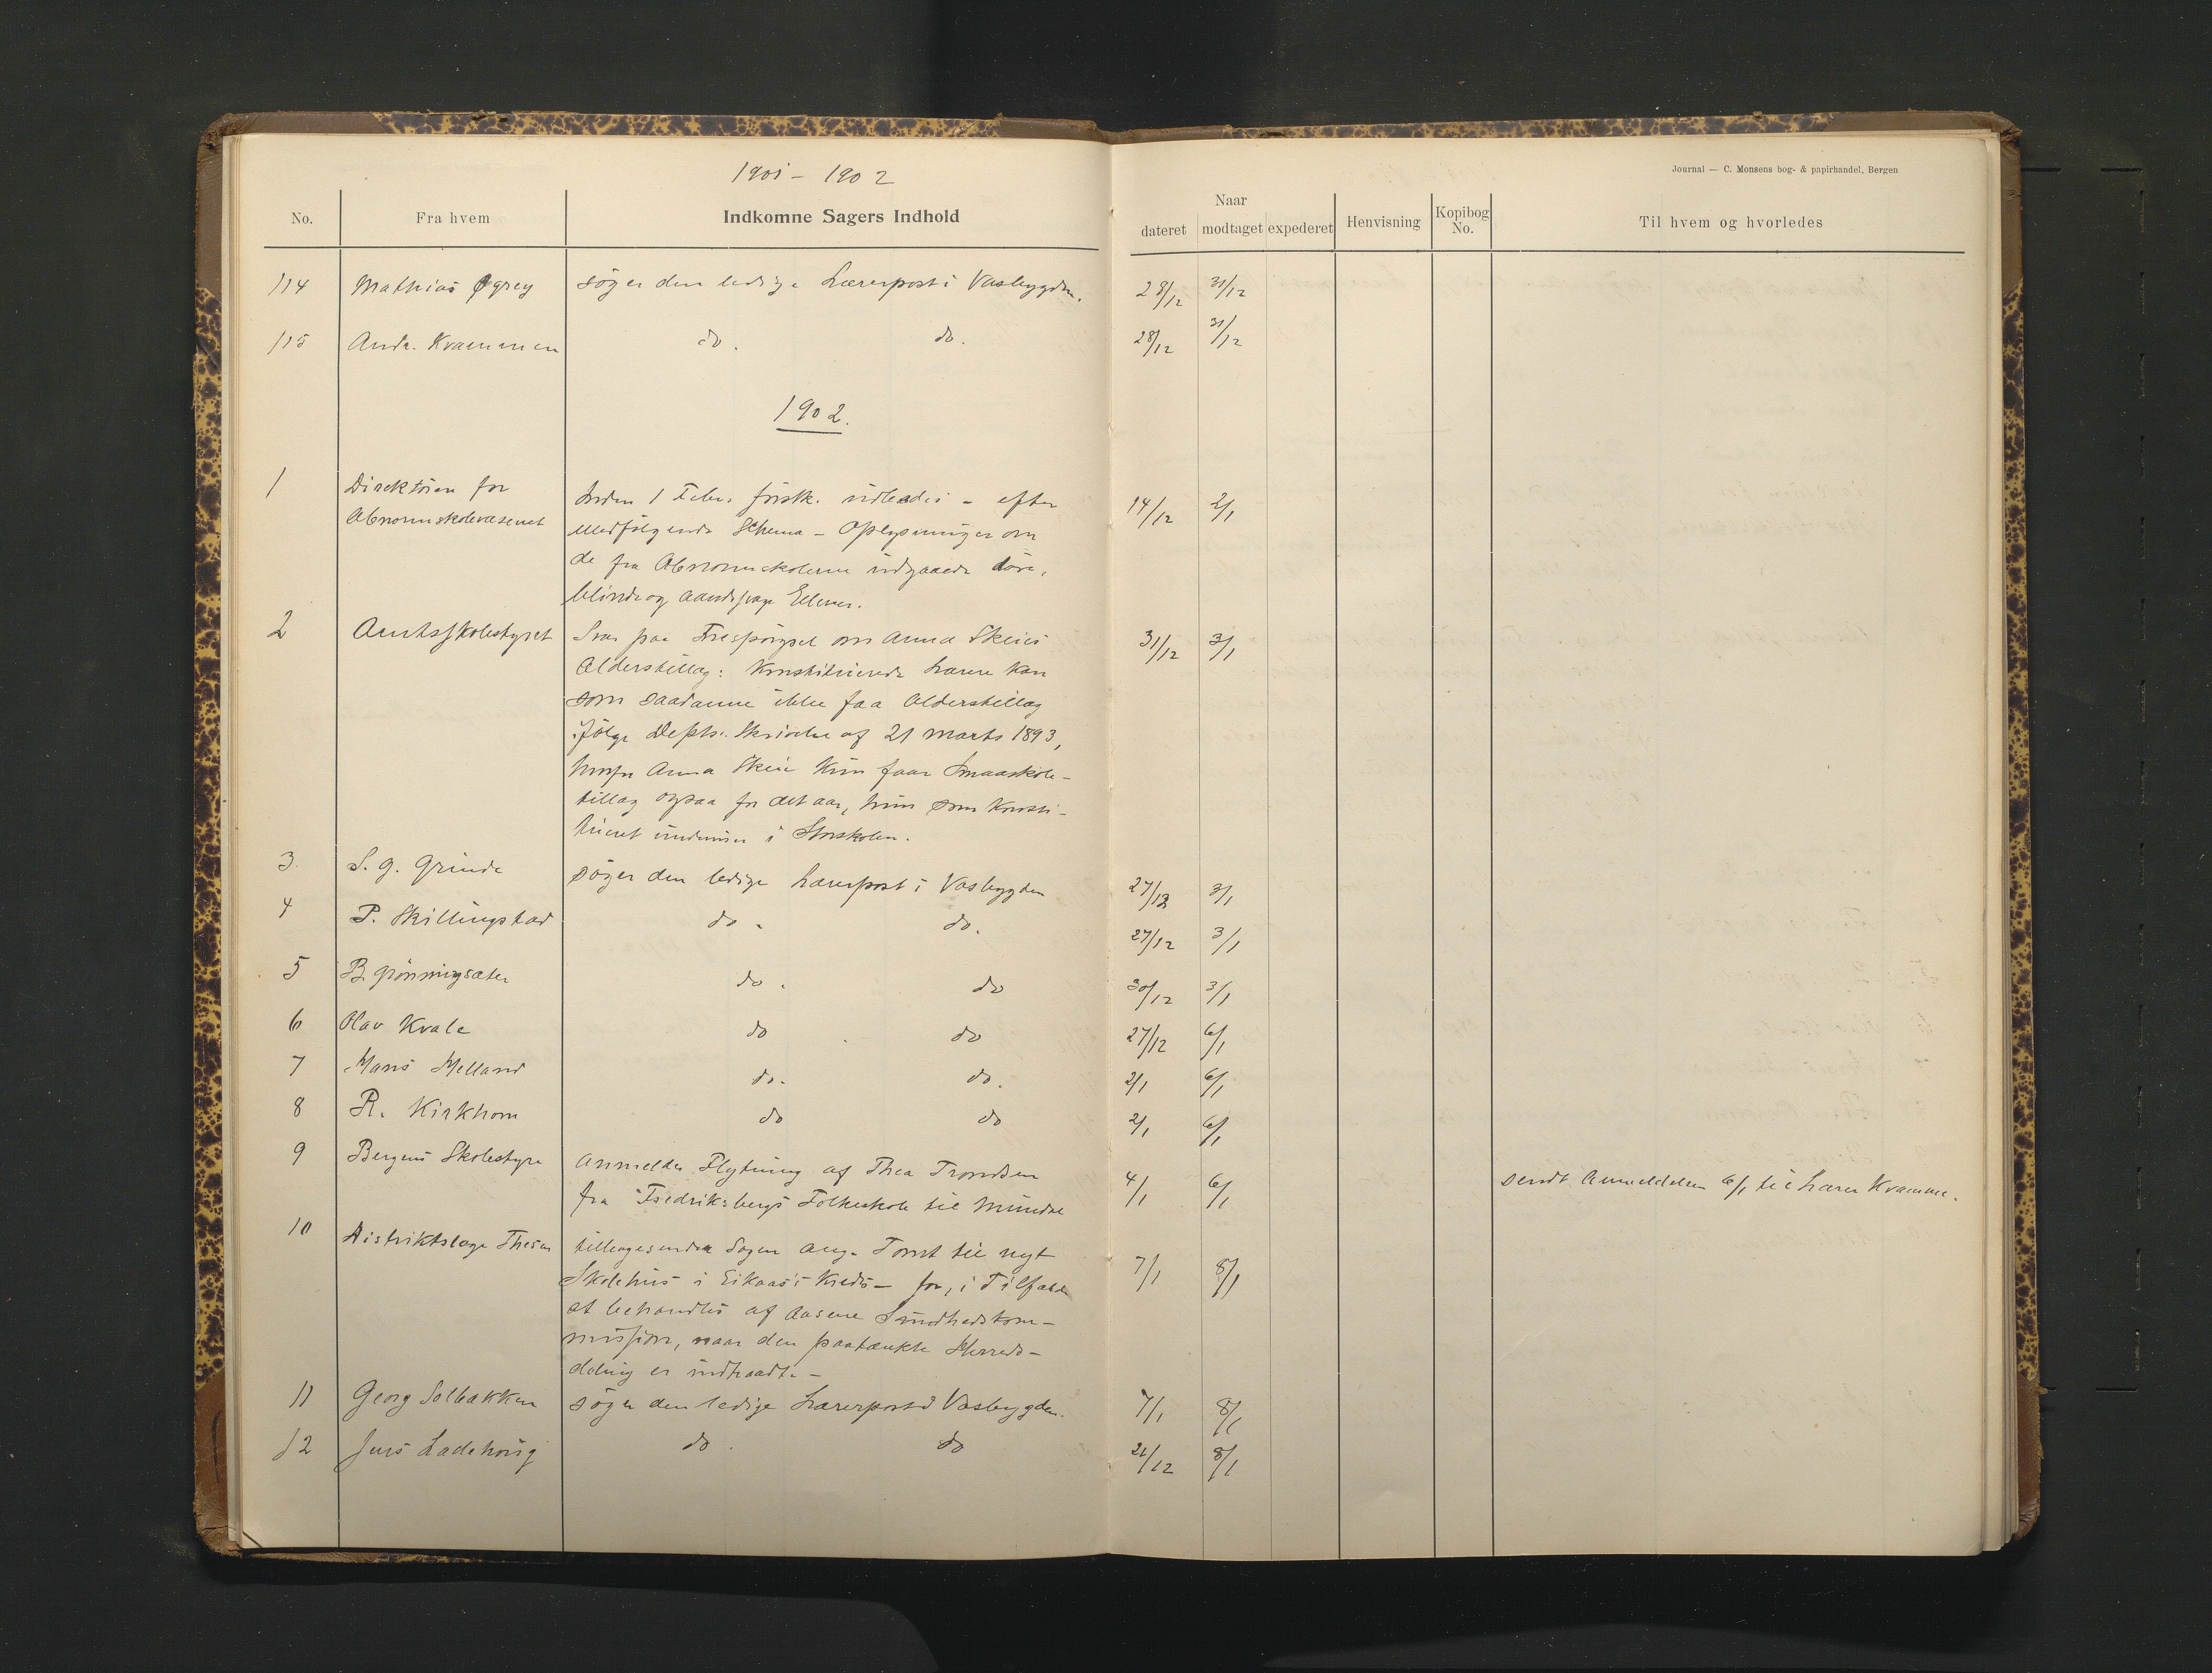 1901 - 1902
Journal — C. Monsens bog- & papirhandel, Bergen
No. Fra hvem Indkomne Sagers Indhold Naar dateret modtaget expederet Henvisning Kopibog No. Til hvem og hvorledes
114 Mathias Øgrey søger den ledige Lærerpost i Vasbygden. 28/12 31/12
115 Andr. Kvammen do. do. 28/12 31/12
1902.
1 Direktøren for Inden 1 Febr. førstk. udbedes - efter 14/12 2/1
Abnormskolevæsenet medfølgende Schema - Oplysninger om
de fra Abnormskolerne udgaaede døve,
blinde og aandssvage Elever.
2 Amtsskolestyret Svar paa Forespørgsel om Anna Skeies 31/12 3/1
Alderstillæg: Konstituerede Lærere kan
som saadanne ikke faa Alderstillæg
ifølge Depts. Skrivelse af 21 Marts 1893,
hvorfor Anna Skeie kun faar Smaaskole-
tillæg ogsaa for det aar, hun som konsti-
tueret underviser i Storskolen.
3 S. G. Grinde søger den ledige Lærerpost i Vasbygden 27/12 3/1
4 P. Skillingstad do. do. 27/12 3/1
5 B. Grønningsæter do. do 30/12 3/1
6 Olav Kvale do do 27/12 6/1
7 Hans Melland do. do. 2/1 6/1
8 R. Kirkhorn do do 2/1 6/1
9 Bergens Skolestyre Anmelder Flytning af Thea Trondsen 4/1 6/1 sendt Anmeldelsen 6/1 til Lærer Kvamme.
fra Fredriksbergs Folkeskole til Mundal
10 Distriktslæge Thesen tilbagesender Sagen ang. Tomt til nyt 7/1 8/1
Skolehus i Eikaas's Kreds - for, i Tilfælde
at behandles af Aasene Sundhedskom-
mission, naar den paatænkte Herreds-
deling er indtraadt. -
11 Georg Solbakken søger den ledige Lærerpost i Vasbygden. 7/1 8/1
12 Jens Ladehoug do. do 21/12 8/1